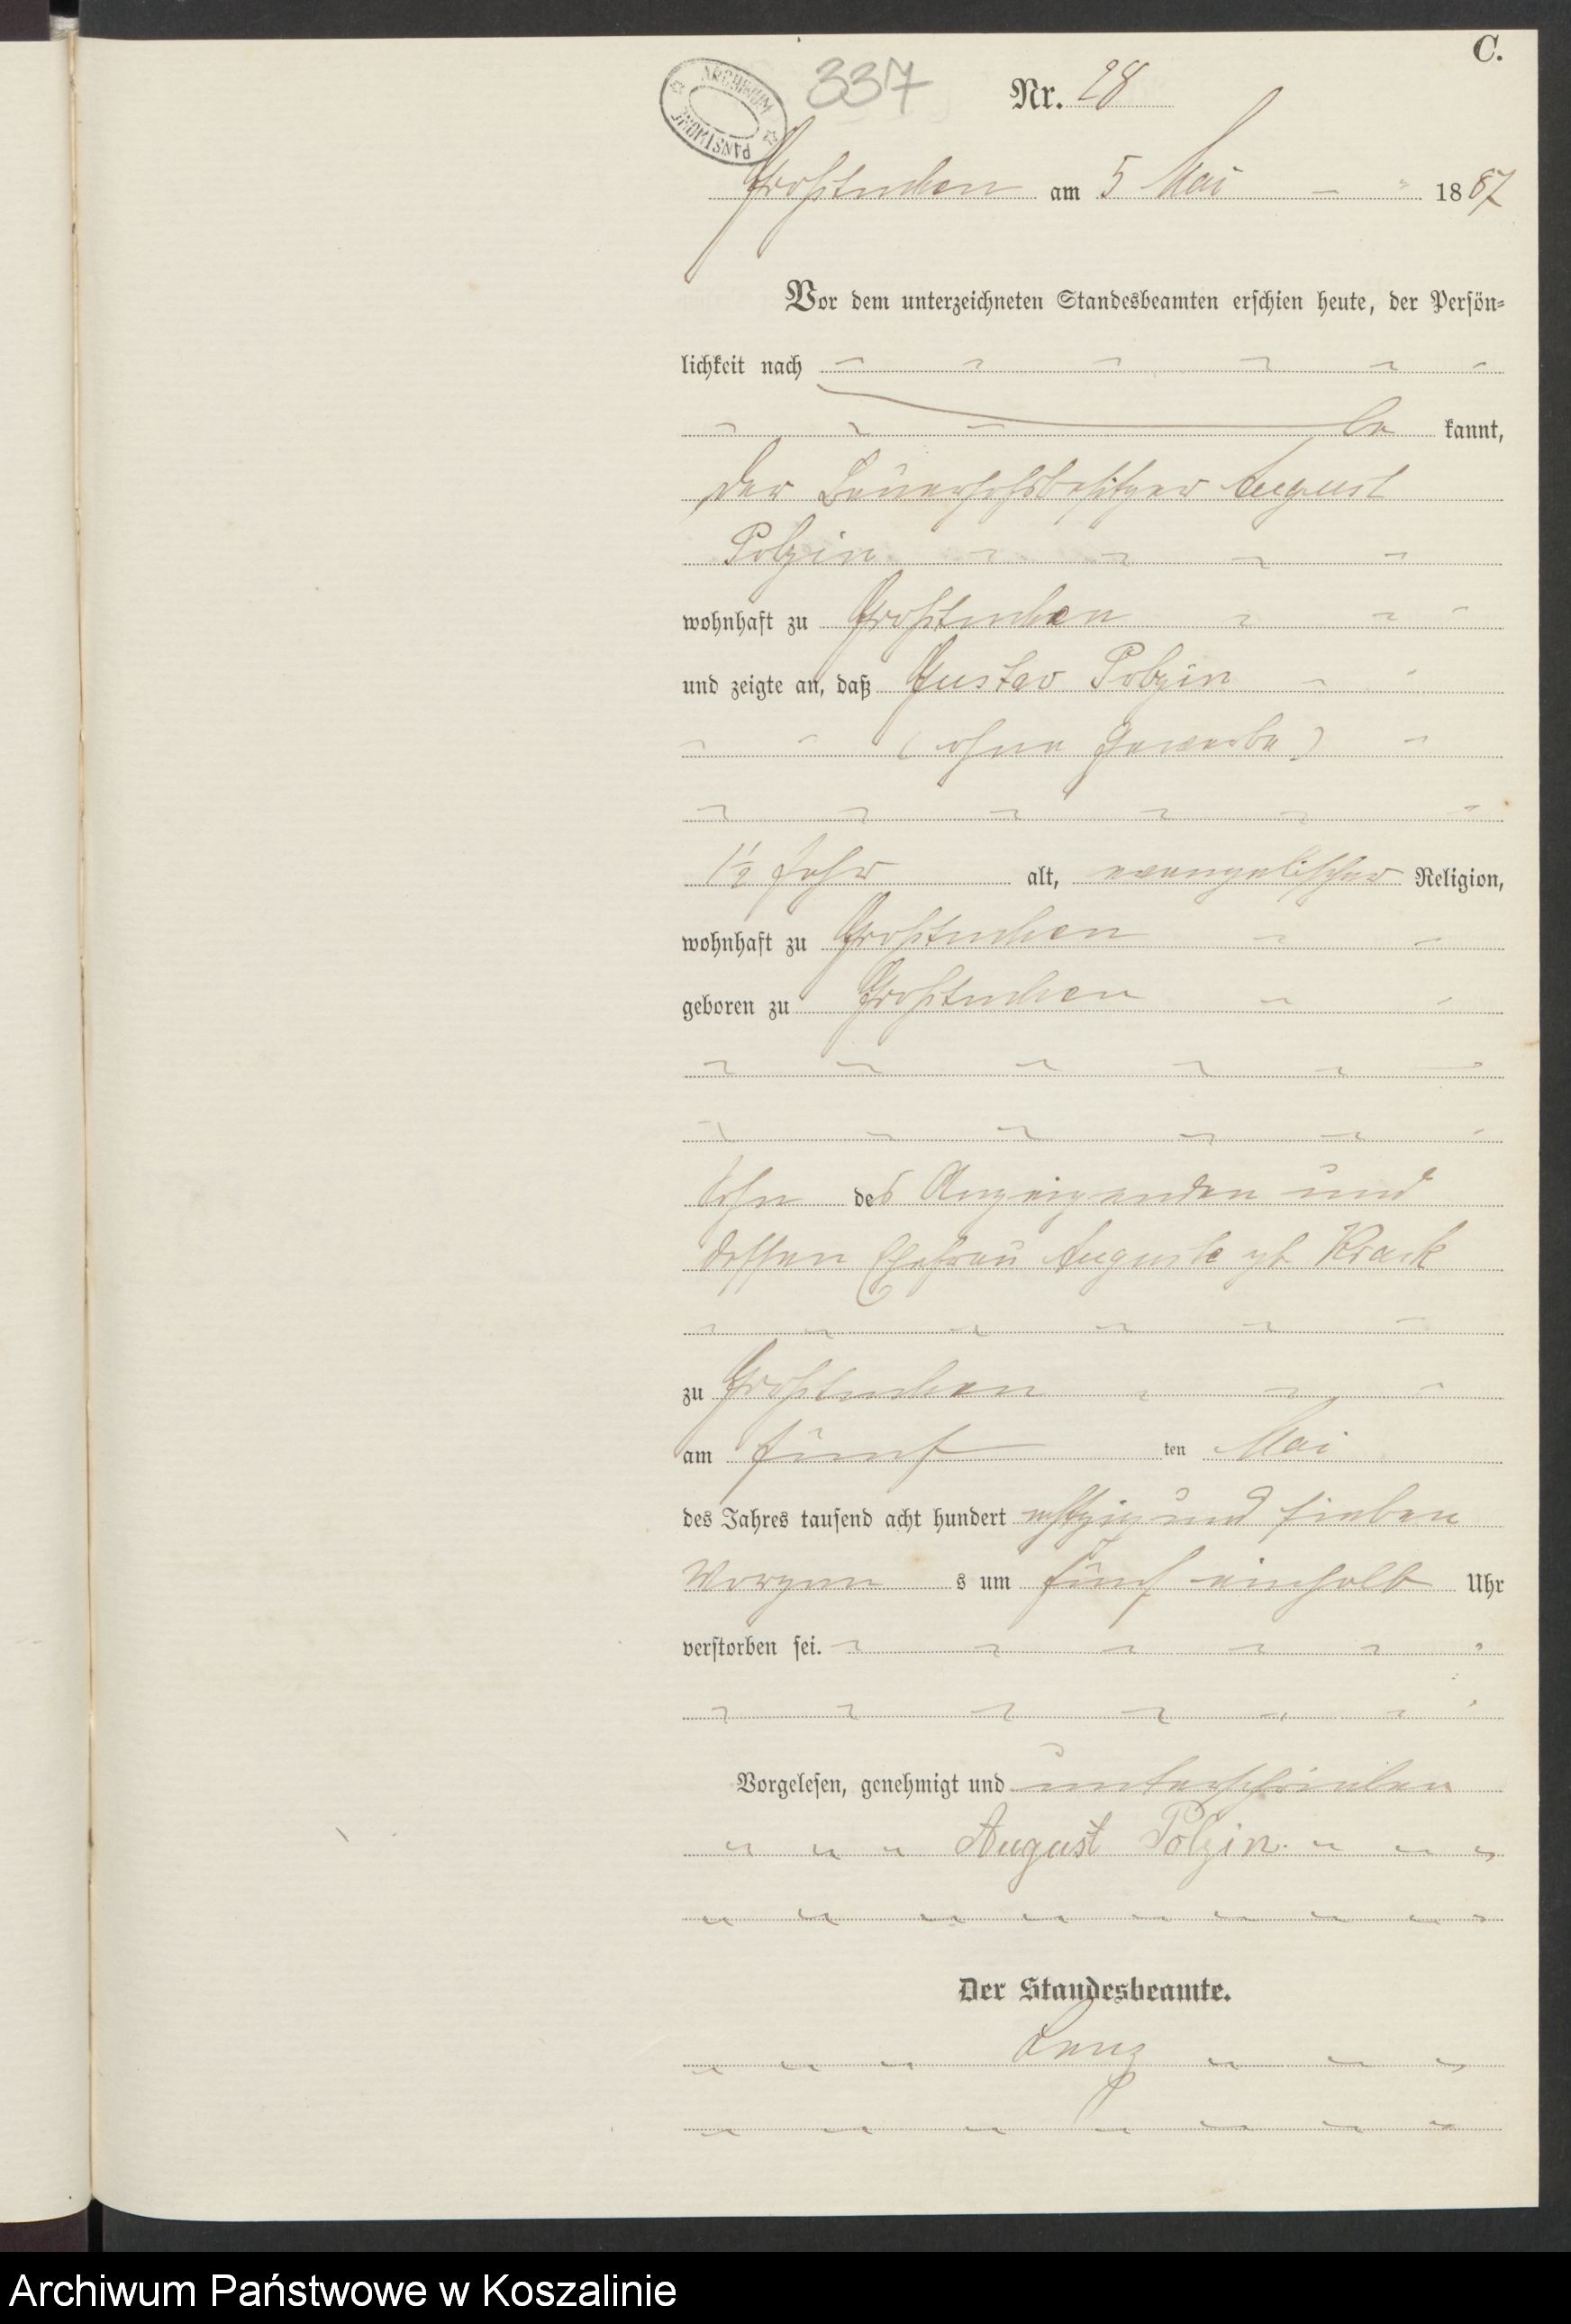 C.
ARCHIWUM PAŃSTWOWE
337
Nr. 28
Großtuchen am 5 Mai 1887
Vor dem unterzeichneten Standesbeamten erschien heute, der Persön-
lichkeit nach
be kannt,
der Bauerhofsbesitzer August
Polzin
wohnhaft zu Großtuchen
und zeigte an, daß Gustav Polzin
(ohne Gewerbe)
1½ Jahr alt, evangelischer Religion,
wohnhaft zu Großtuchen
geboren zu Großtuchen
Sohn des Anzeigenden und
dessen Ehefrau Auguste gb Krack
zu Großtuchen
am fünf ten Mai
des Jahres tausend acht hundert achtzig und sieben
Morgen s um fünf einhalb Uhr
verstorben sei.
Vorgelesen, genehmigt und unterschrieben
August Polzin.
Der Standesbeamte.
Archiwum Państwowe w Koszalinie